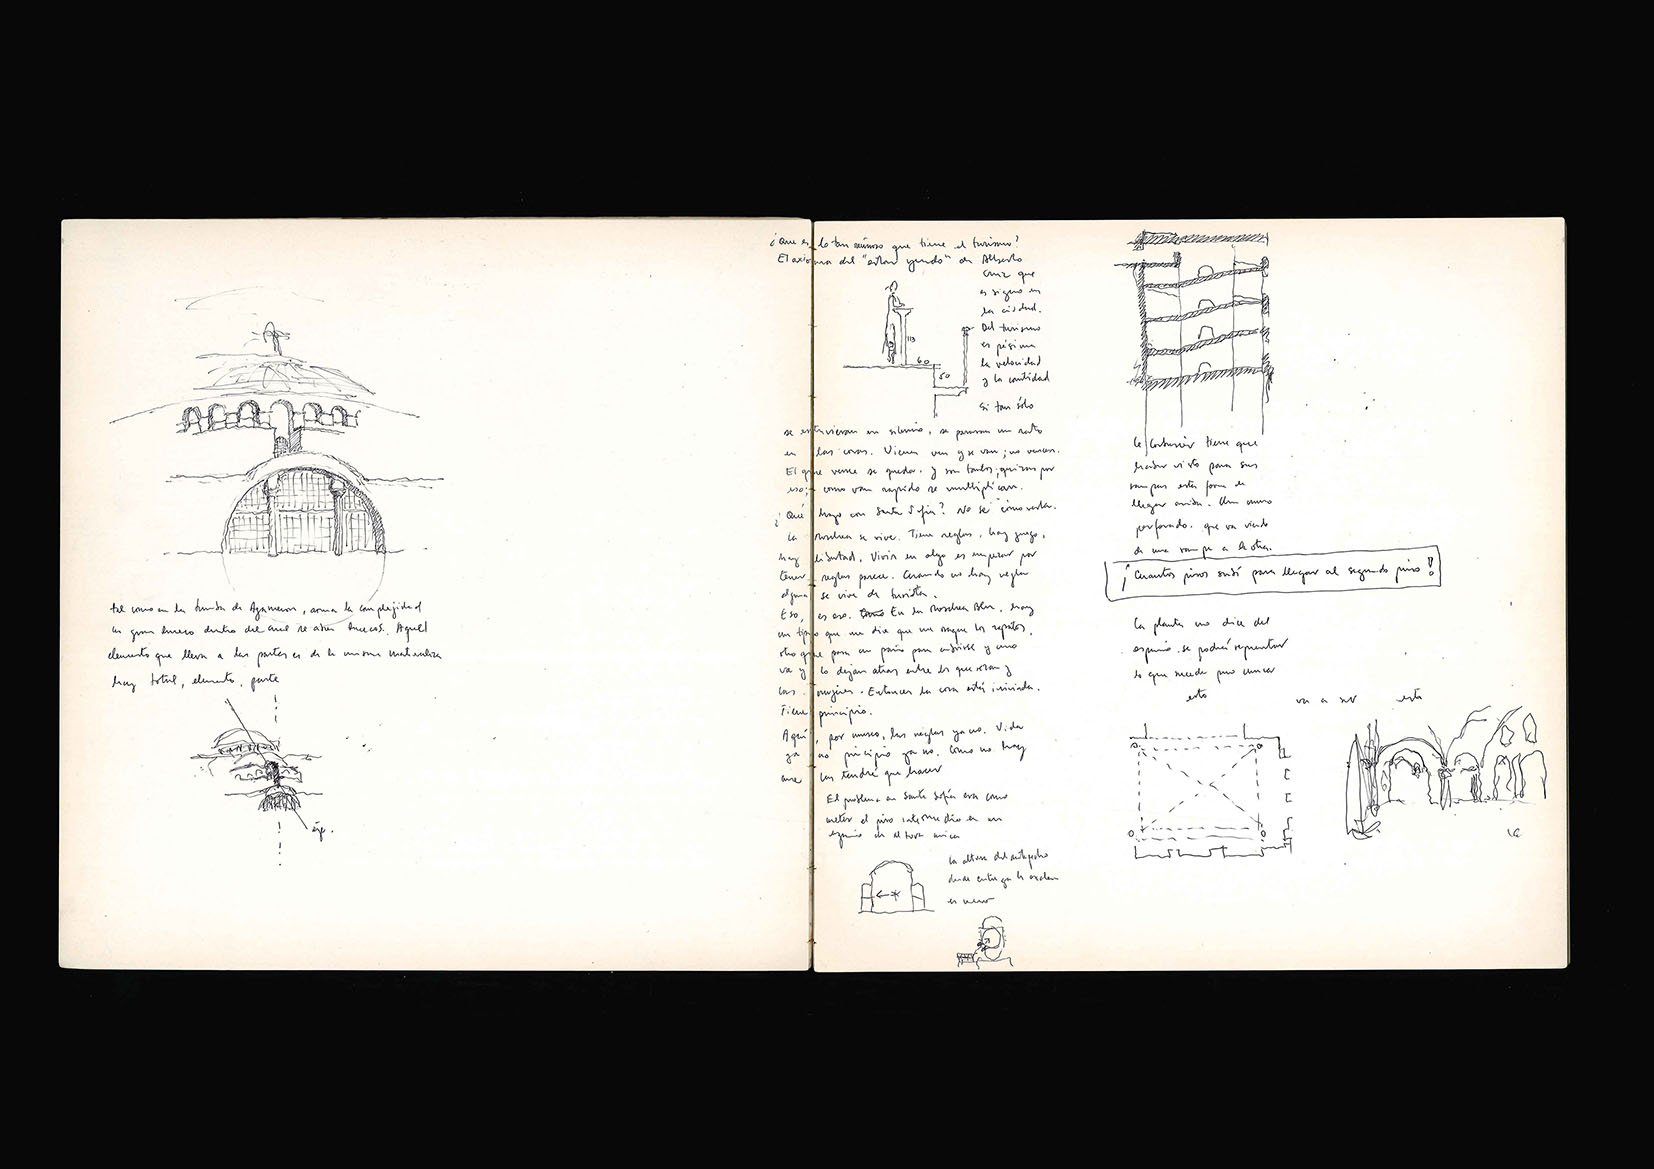 tal como en la tumba de Agamenon, arma la complejidad
un gran hueco dentro del cual se abren huecos. Aquel
elemento que lleva a las partes es de la misma naturaleza
hay total, elemento, parte
eje.
¿Que es lo tan que tiene el turismo?
El axioma del "estar yendo" de Alberto
Cruz que
es signo en
la ciudad.
Del turismo
es pésima
la velocidad
y la cantidad
Si tan sólo
113
60
50
se estuvieran en silencio, se pararan un rato
en las cosas. Vienen ven y se van; no vencen.
El que vence se queda. y son tantos; quizas por
eso; como van rapido se multiplican.
¿Qué hago con Santa Sofia? No sé como verla.
La se vive. Tiene reglas, hay juego,
hay libertad. Vivir en algo es empezar por
tener reglas parece. Cuando no hay regla
alguna se vive de turista.
Eso, es eso. En la Blu. hay
un tipo que me dice que me saque los zapatos,
otro que pasa un paño para cubrirse y uno
va y lo dejan atras entre los que rezan y
las mujeres. Entonces la cosa está iniciada.
Tiene principio.
Aquí, por museo, las reglas ya no. Vida
ya no principio ya no. Como no hay
las tendré que hacer
El problema en Santa Sofía era como
meter el piso intermedio en un
espacio de altura unica
La altura del antepecho
desde
es
Le Corbusier tiene que
haber visto para sus
rampas esta forma de
llegar arriba. Un muro
perforado. que va viendo
de una rampa a la otra.
¡Cuantos pisos subí para llegar al segundo piso!
La planta no dice del
espacio. se podrá representar
lo que sucede pero nunca
esto va a ser esto